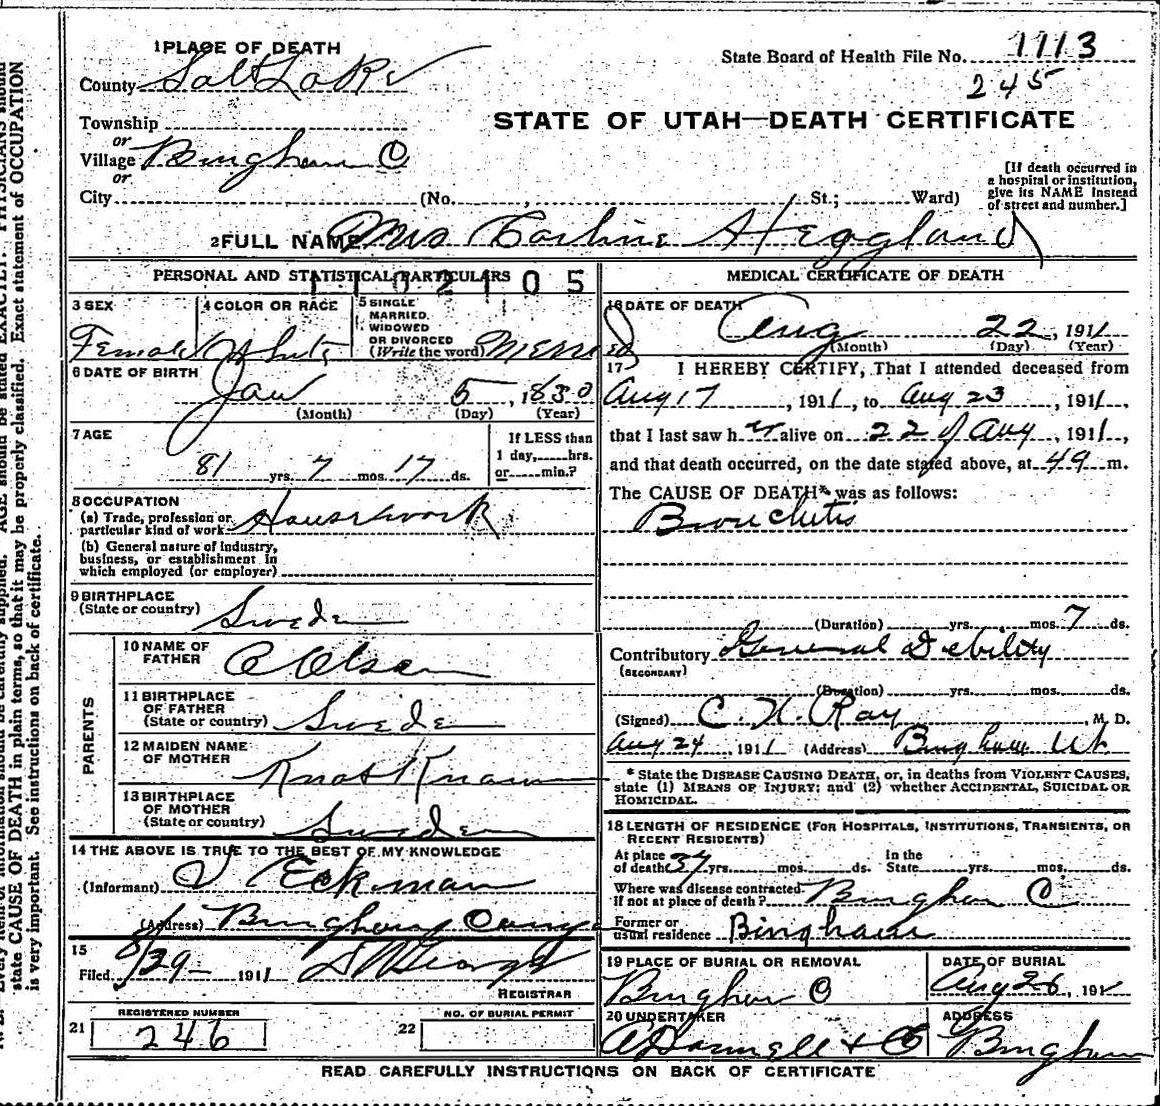 1 PLACE OF DEATH
County Salt Lake
State Board of Health File No. 1113
245
STATE OF UTAH—DEATH CERTIFICATE
Township
or
Village Bingham C
or
City (No. , St.; Ward)
[If death occurred in
a hospital or institution,
give its NAME instead
of street and number.]
2 FULL NAME Mrs Carline Heggland
PERSONAL AND STATISTICAL PARTICULARS
1102105
3 SEX
Female
4 COLOR OR RACE
White
5 SINGLE
MARRIED,
WIDOWED
OR DIVORCED
(Write the word) Merried
6 DATE OF BIRTH
Jan 5, 1830
(Month) (Day) (Year)
7 AGE
81 yrs. 7 mos. 17 ds.
If LESS than
1 day, hrs.
or min.?
8 OCCUPATION
(a) Trade, profession or
particular kind of work Housework
(b) General nature of industry,
business, or establishment in
which employed (or employer)
9 BIRTHPLACE
(State or country) Sweden
PARENTS
10 NAME OF
FATHER Olsen
11 BIRTHPLACE
OF FATHER
(State or country) Sweden
12 MAIDEN NAME
OF MOTHER Knot Known
13 BIRTHPLACE
OF MOTHER
(State or country) Sweden
14 THE ABOVE IS TRUE TO THE BEST OF MY KNOWLEDGE
(Informant) V Eckman
(Address) Bingham Canyo
15
Filed 8/29 1911
REGISTRAR
REGISTERED NUMBER
21 246
NO. OF BURIAL PERMIT
22
MEDICAL CERTIFICATE OF DEATH
16 DATE OF DEATH
Aug 22, 1911
(Month) (Day) (Year)
17 I HEREBY CERTIFY, That I attended deceased from
Aug 17, 1911, to Aug 23, 1911,
that I last saw h er alive on 22 of Aug, 1911,
and that death occurred, on the date stated above, at 49 m.
The CAUSE OF DEATH* was as follows:
Bronchitis
(Duration) yrs. mos. 7 ds.
Contributory General Debility
(SECONDARY)
(Duration) yrs. mos. ds.
(Signed) C. N. Ray, M. D.
Aug 24, 1911 (Address) Bingham Ut
* State the DISEASE CAUSING DEATH, or, in deaths from VIOLENT CAUSES,
state (1) MEANS OF INJURY; and (2) whether ACCIDENTAL, SUICIDAL OR
HOMICIDAL.
18 LENGTH OF RESIDENCE (FOR HOSPITALS, INSTITUTIONS, TRANSIENTS, OR
RECENT RESIDENTS)
At place
of death 37 yrs. mos. ds.
In the
State yrs. mos. ds.
Where was disease contracted
if not at place of death? Bingham C.
Former or
usual residence Bingham
19 PLACE OF BURIAL OR REMOVAL
Bingham C
DATE OF BURIAL
Aug 26, 191
20 UNDERTAKER
O'Donnell & Co
ADDRESS
Bingham
READ CAREFULLY INSTRUCTIONS ON BACK OF CERTIFICATE
state CAUSE OF DEATH in plain terms, so that it may be properly classified. Exact statement of OCCUPATION
is very important. See instructions on back of certificate.